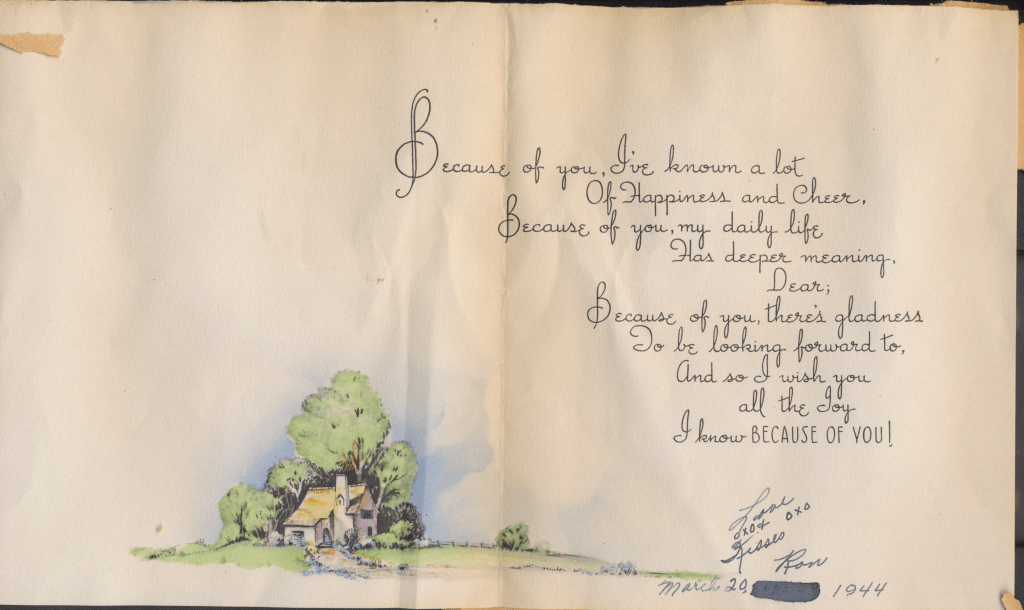 Because of you, I've known a lot
Of Happiness and Cheer,
Because of you, my daily life
Has deeper meaning,
Dear;
Because of you, there's gladness
To be looking forward to,
And so I wish you
all the Joy
I know BECAUSE OF YOU!
Love
oxox oxo
Kisses
Ron
March 20, 1944